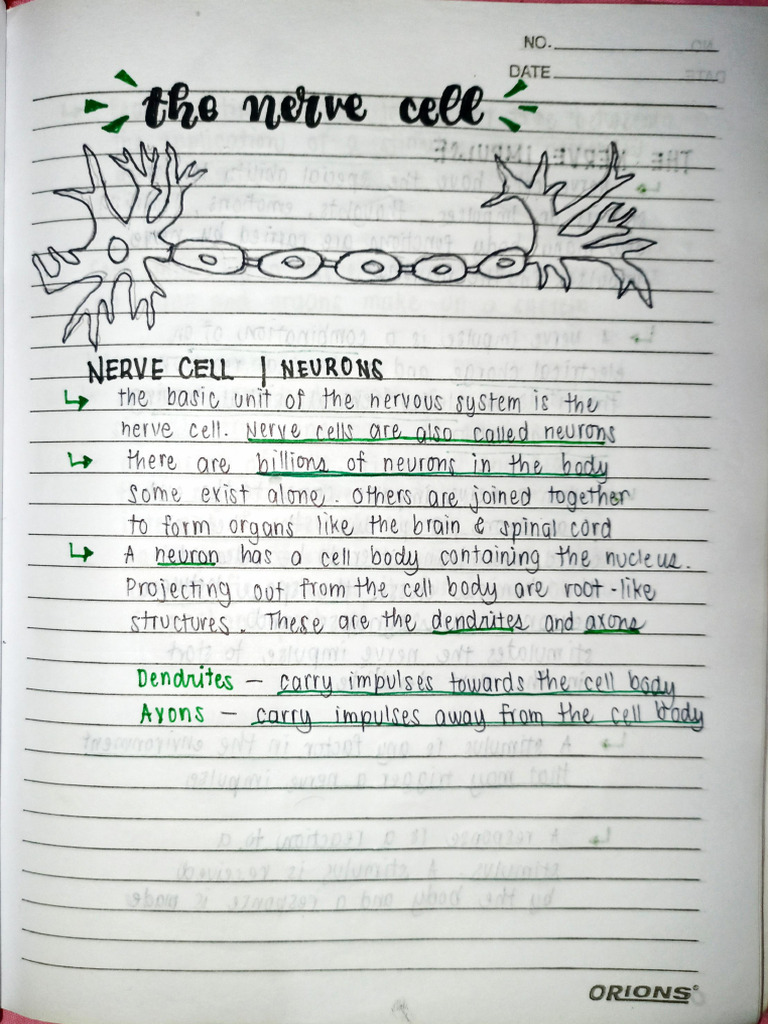 NO.
DATE
the nerve cell
NERVE CELL | NEURONS
↳ the basic unit of the nervous system is the
nerve cell. Nerve cells are also called neurons
↳ there are billions of neurons in the body
some exist alone. Others are joined together
to form organs like the brain & spinal cord
↳ A neuron has a cell body containing the nucleus.
Projecting out from the cell body are root-like
structures. These are the dendrites and axons
Dendrites – carry impulses towards the cell body
Axons – carry impulses away from the cell body
ORIONS